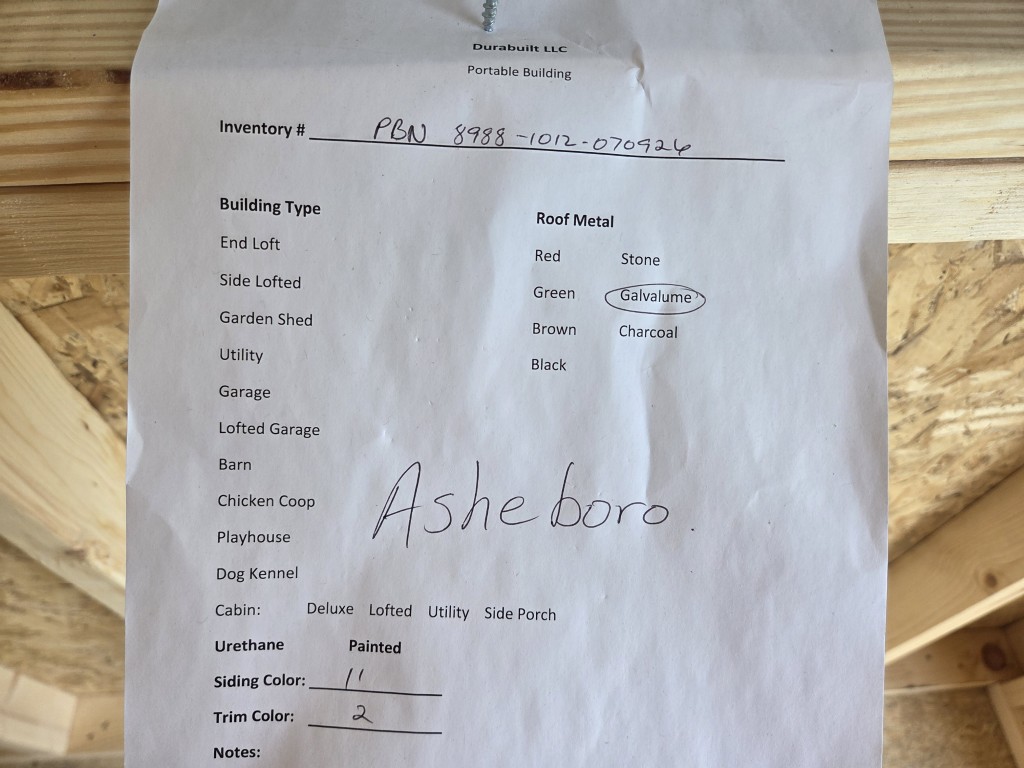 Durabuilt LLC
Portable Building
Inventory # PBN 8988-1012-070926
Building Type
End Loft
Side Lofted
Garden Shed
Utility
Garage
Lofted Garage
Barn
Chicken Coop
Playhouse
Dog Kennel
Cabin: Deluxe Lofted Utility Side Porch
Roof Metal
Red Stone
Green Galvalume
Brown Charcoal
Black
Asheboro
Urethane Painted
Siding Color: 11
Trim Color: 2
Notes: